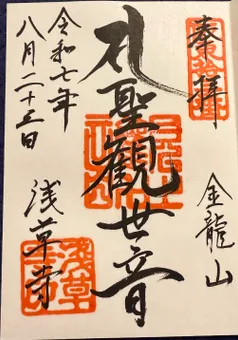 奉拝
金龍山
聖観世音
浅草寺
令和七年
八月二十三日
浅草